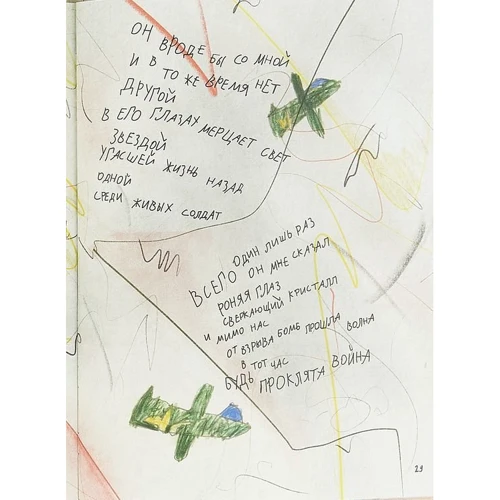 ОН ВРОДЕ БЫ СО МНОЙ
И В ТО ЖЕ ВРЕМЯ НЕТ
ДРУГОЙ
В ЕГО ГЛАЗАХ МЕРЦАЕТ СВЕТ
ЗВЕЗДОЙ
УГАСШЕЙ ЖИЗНЬ НАЗАД
ОДНОЙ
СРЕДИ ЖИВЫХ СОЛДАТ
ОДИН ЛИШЬ РАЗ
ВСЕГО ОН МНЕ СКАЗАЛ
РОНЯЯ ГЛАЗ
СВЕРКАЮЩИЙ КРИСТАЛЛ
И МИМО НАС
ОТ ВЗРЫВА БОМБ ПРОШЛА ВОЛНА
В ТОТ ЧАС
БУДЬ ПРОКЛЯТА ВОЙНА
29